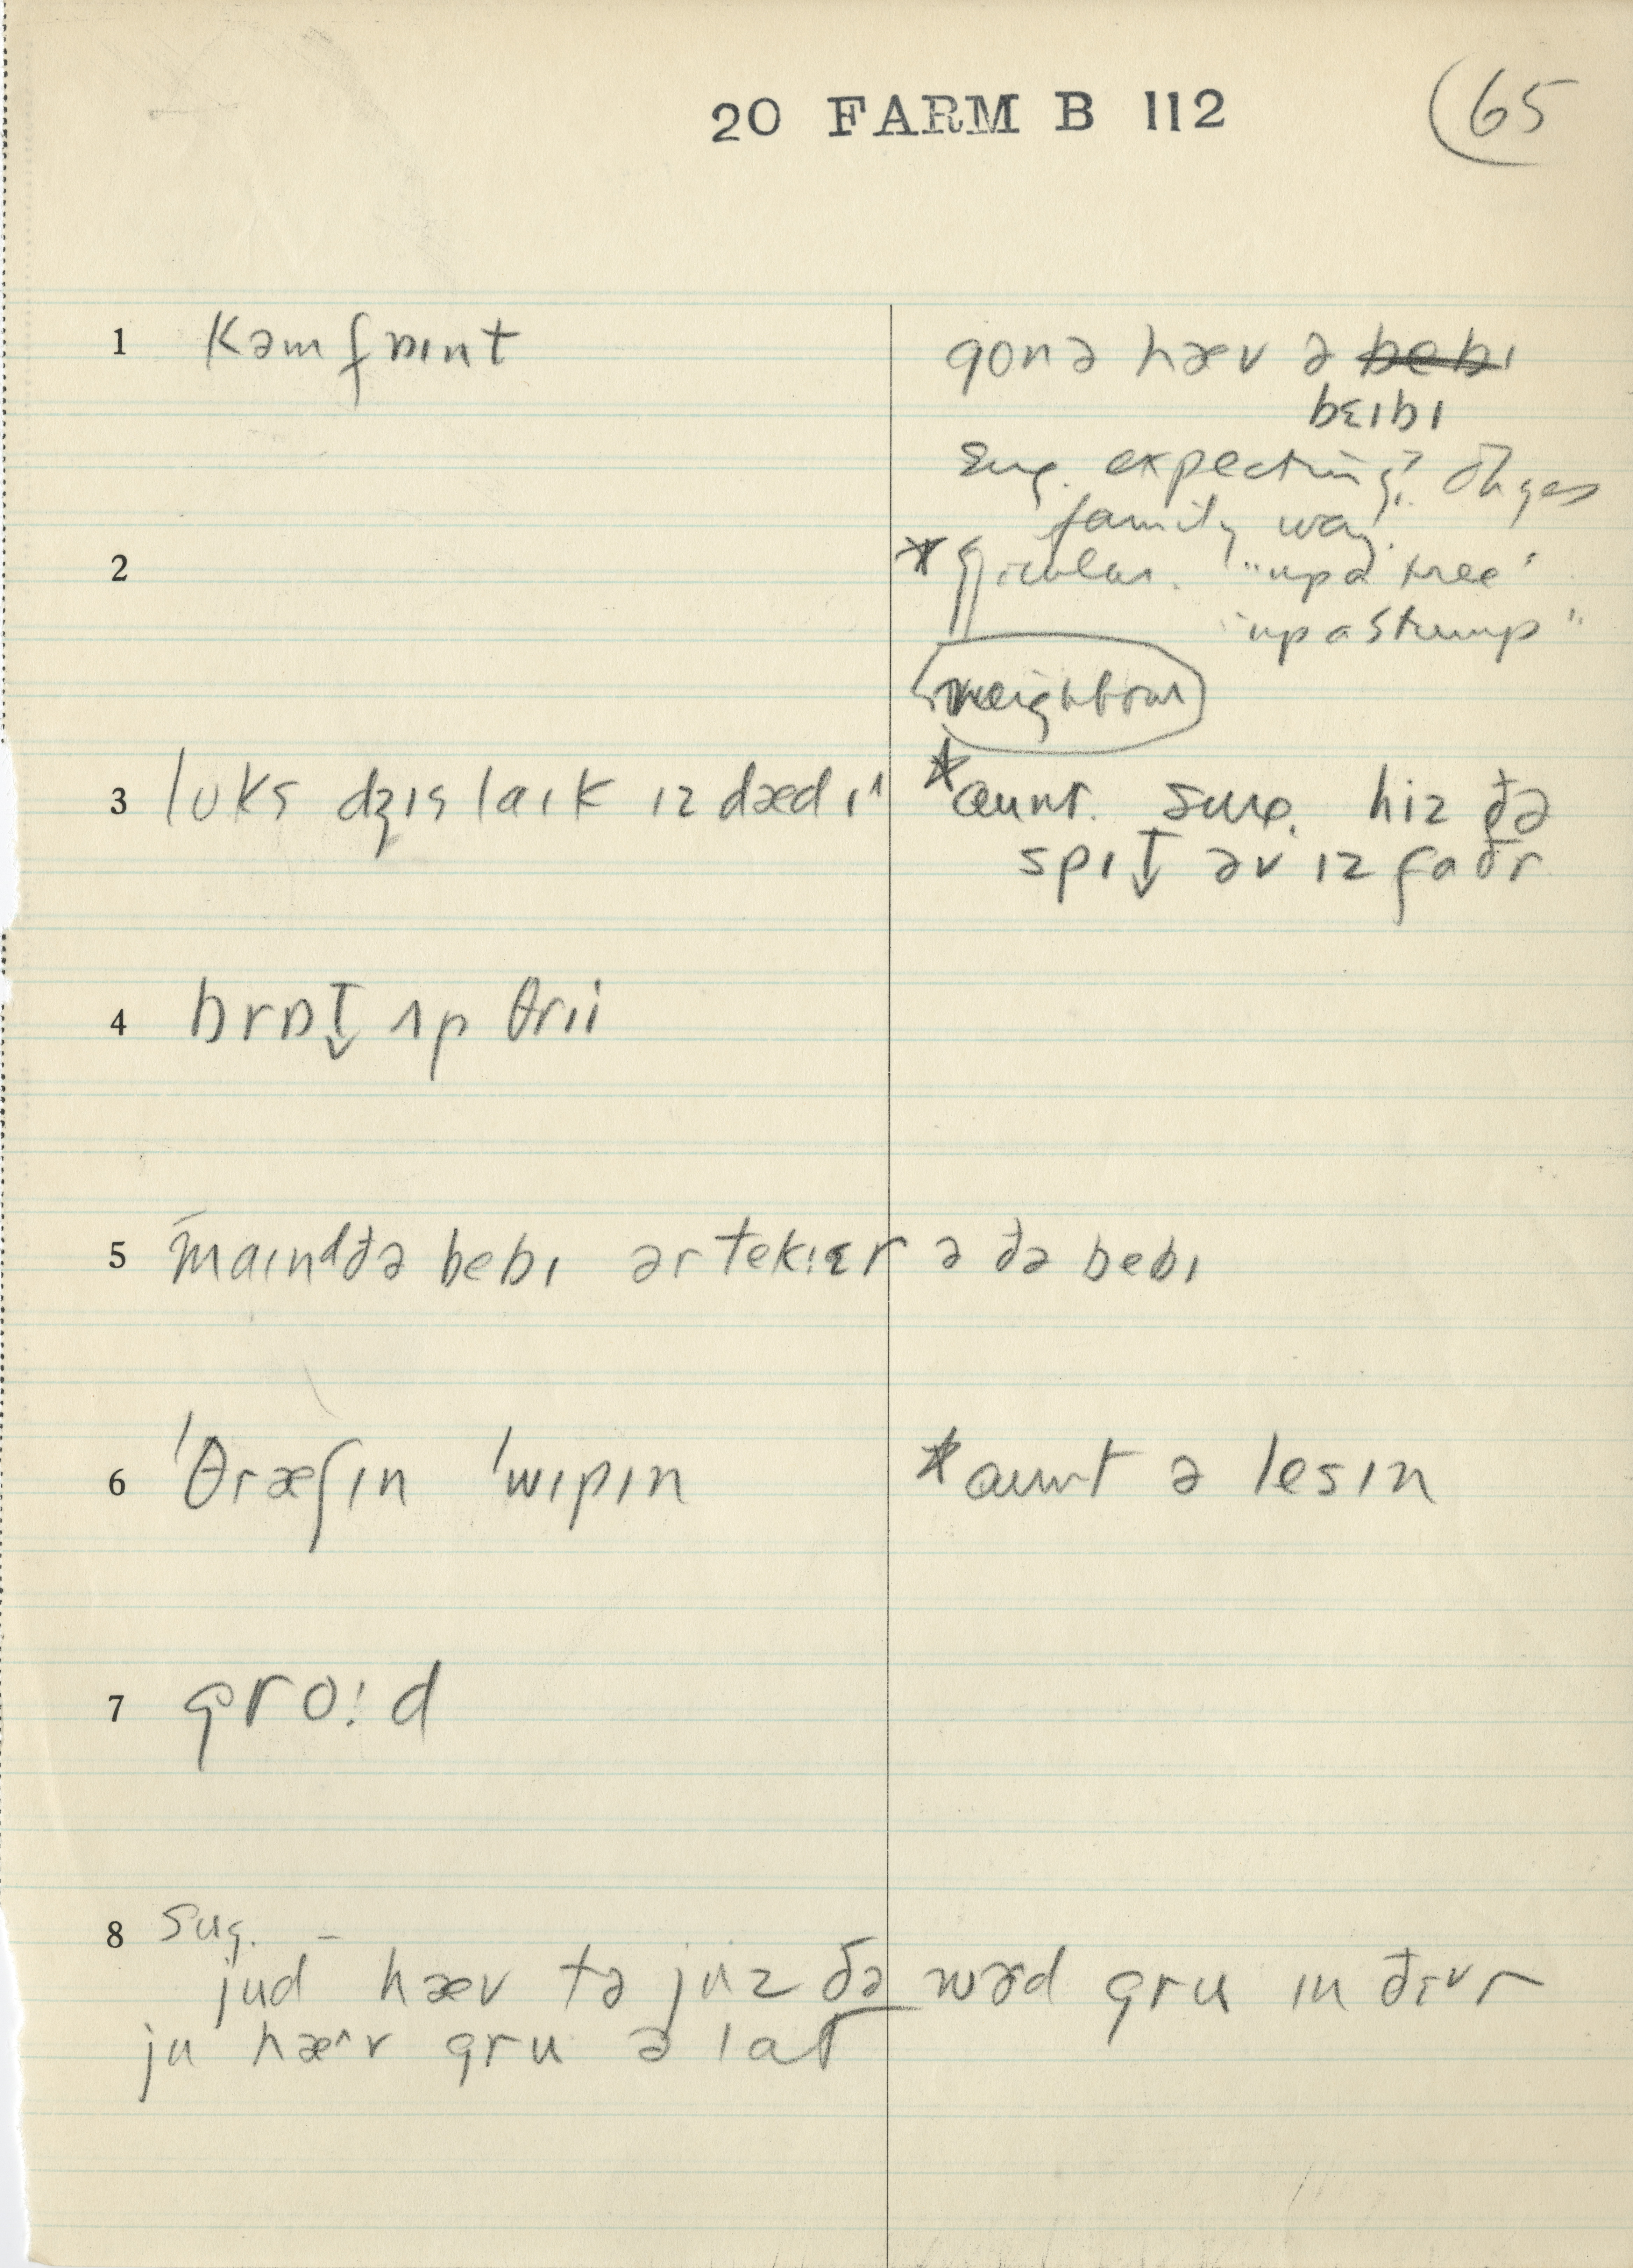 20 FARM B 112
65
1 kəm fɒɪnt
gonə hæv ə bebɪ
bɛɪbɪ
sug. expecting? Oh yes
family way.
2 * jicular. "up a tree"
"up a stump"
neighbour
3 lʊks dʒɪs laɪk ɪz dædɪ^
* aunt. sug. hiz ðə
spɪt̬ əv ɪz faðr
4 brɒt̬ ʌp θrii
5 maɪnᵈðə bebɪ ər tekɪɛr ə ðə bebɪ
6 ˈθræʃɪn ˈwɪpɪn
* aunt ə lesɪn
7 gro:d
8 sug.
jud hæv tə juz ðə wərd gru ɪn ðɛr
ju hæ^v gru ə lat